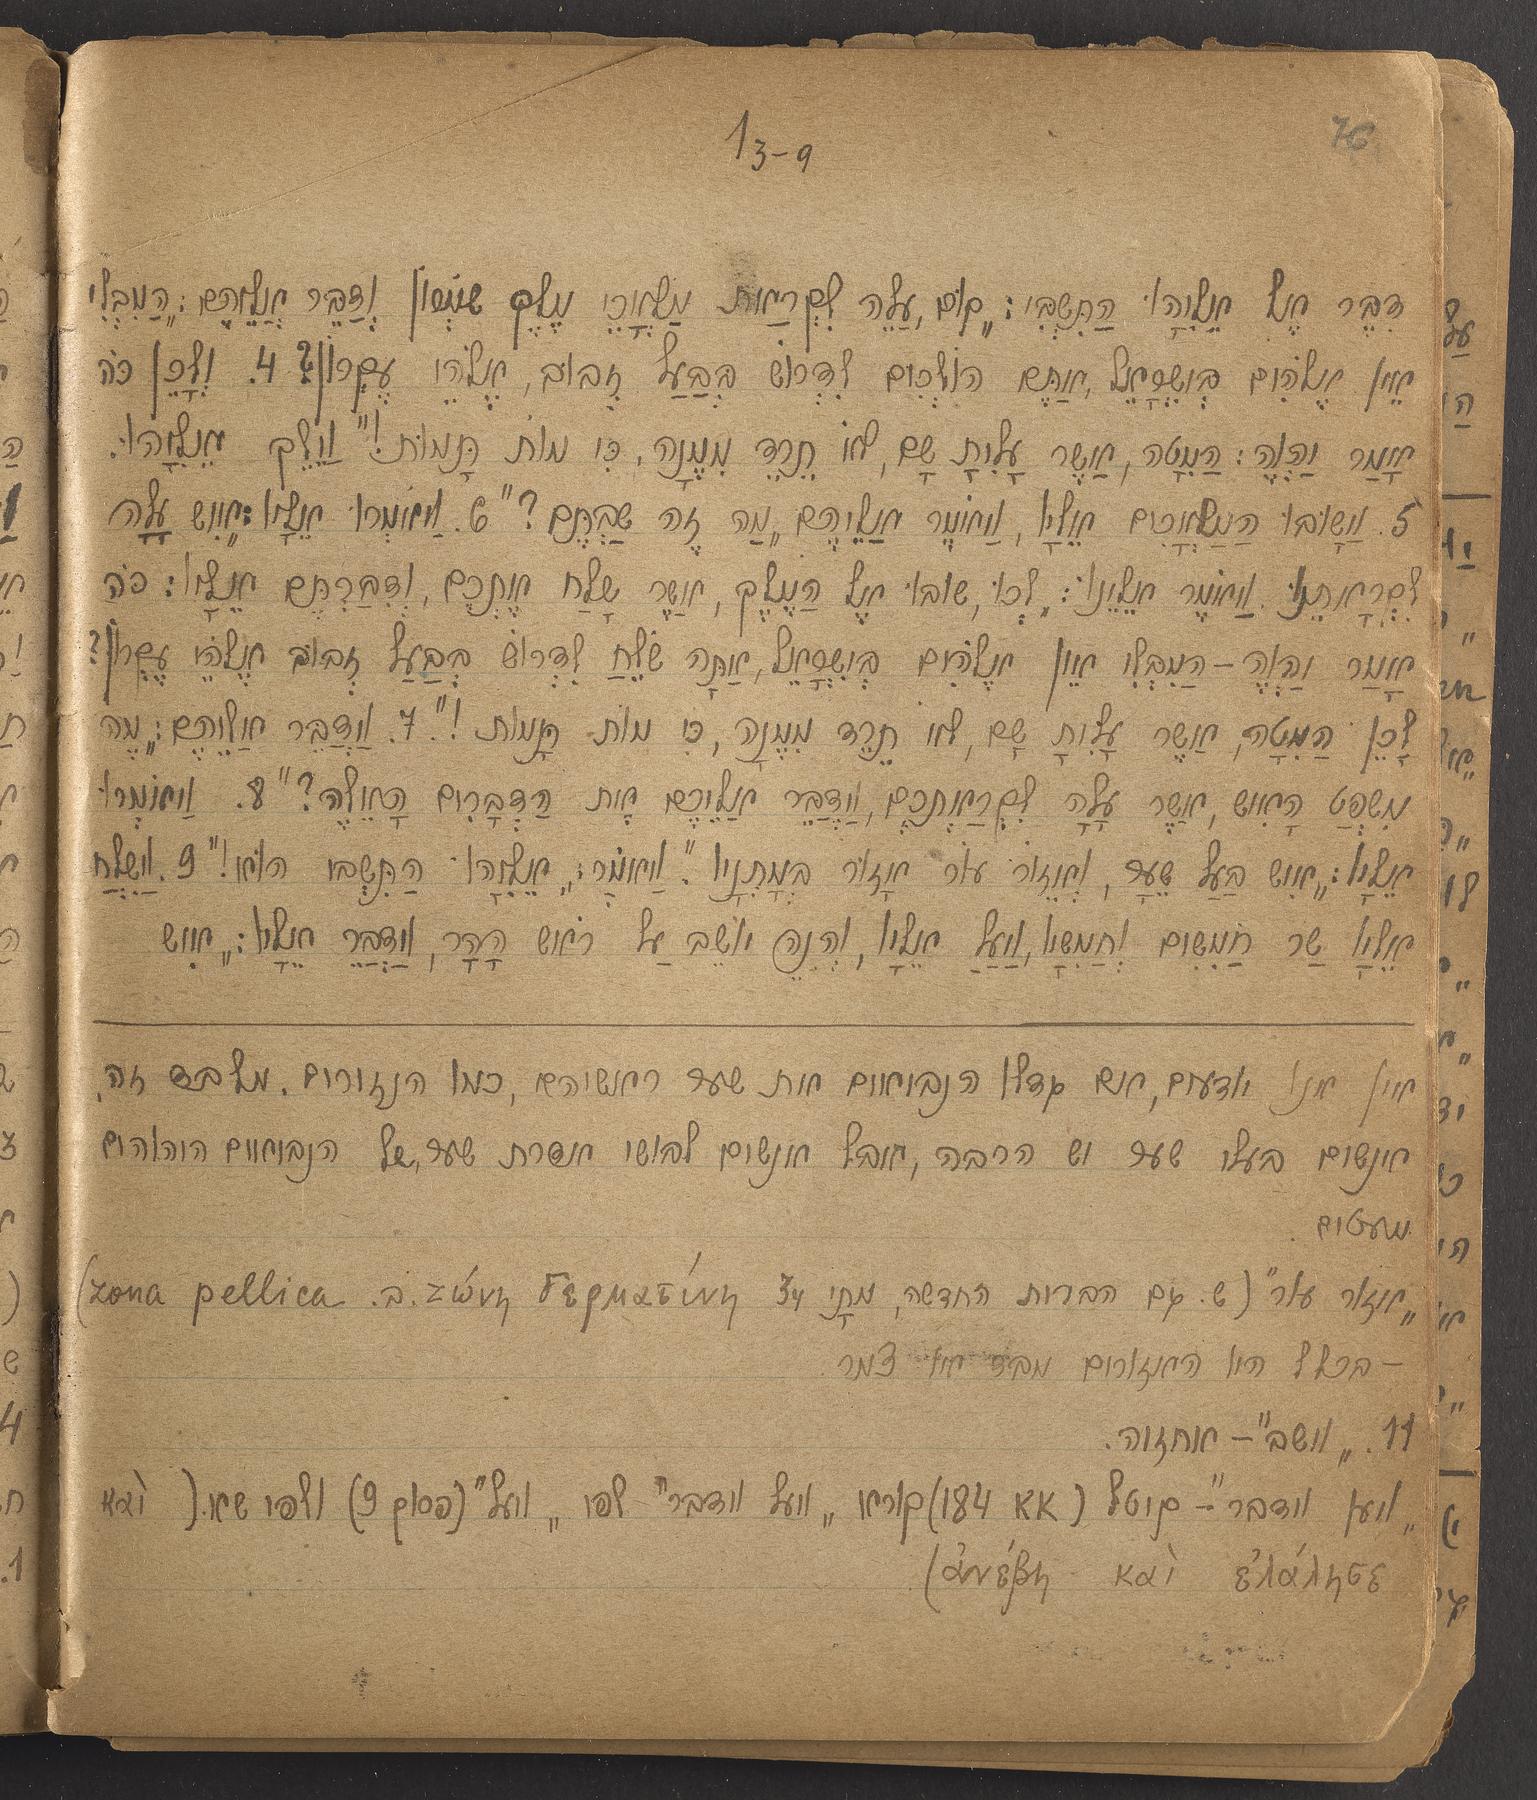 76
1 3-9
דִבֶּר אֶל אֵלִיָהוּ הַתִּשְׁבִּי: „קוּם, עֲלֵה לִקְרַאת מַלְאֲכֵי מֶלֶךְ שׁמְרוֹן וְדַבֵּר אֲלֵהֶם: „הַמִבְּלִי
אֵין אֱלֹהִים בְּיִשְׂרָאֵל, אַתֶּם הוֹלְכִים לִדְרוֹשׁ בְּבַעַל זְבוּב, אֱלֹהֵי עֶקְרוֹן? 4. וְלָכֵן כֹּה
אָמַר יַהְוֶה: הַמִטָה, אֲשֶׁר עָלִיתָ שָׁם, לֹא תֵרֵד מִמֶנָה, כִּי מוֹת תָּמוּת!" וַיֵלֶךְ אֵלִיָהוּ.
5. וַיָשׁוּבוּ הַמַלְאָכִים אֵלָיו, וַיֹאמֶר אֲלֵיהֶם „מַה זֶה שַׁבְתֶּם?" 6. וַיֹאמְרוּ אֵלָיו: „אִישׁ עָלָה
לִקְרָאתֵנוּ. וַיֹאמֶר אֵלֵינוּ: „לְכוּ, שׁוּבוּ אֶל הַמֶלֶךְ, אֲשֶׁר שָׁלַח אֶתְכֶם, וְדִבַּרְתֶּם אֵלָיו: כֹּה
אָמַר יַהְוֶה – הַמִבְּלִי אֵין אֱלֹהִים בְּיִשְׂרָאֵל, אַתָּה שֹׁלֵחַ לִדְרוֹשׁ בְּבַעַל זְבוּב אֱלֹהֵי עֶקְרוֹן?
לָכֵן הַמִטָה, אֲשֶׁר עָלִיתָ שָׁם, לֹא תֵרֵד מִמֶנָה, כִּי מוֹת תָּמוּת!" 7. וַיְדַבֵּר אֲלֵיהֶם: „מֶה
מִשְׁפַּט הָאִישׁ, אֲשֶׁר עָלָה לִקְרַאתְכֶם, וַיְדַבֵּר אֲלֵיכֶם אֶת הַדְבָרִים הָאֵלֶה?" 8. וַיֹאמְרוּ
אֵלָיו: „אִישׁ בַּעַל שֵׂעָר, וְאֵזוֹר עוֹר אָזוּר בְּמָתְנָיו". וַיֹאמַר: „אֵלִיָהוּ הַתִּשְׁבִּי הוּא!" 9. וַיִשְׁלַח
אֵלָיו שַׂר חֲמִשִׁים וַחֲמִשָׁיו, וַיַעַל אֵלָיו, וְהִנֵה יוֹשֵׁב עַל רֹאשׁ הָהָר, וַיְדַבֵּר אֵלָיו: „אִישׁ
אין אנו יודעים, אם קדלו הנביאים את שער ראשיהם, כמו הנזירים. מלבד זה
אנשים בעלי שער יש הרבה, אבל אנשים לבושי אדרת שער, של הנביאים היהוהיים
מעטים.
„אזור עור" (ש. גם הברית החדשה, מתי 3 4 ζώνη δερματίνη ב. zona pellica)
– בכלל היו האזורים מבד או צמר
11. „וישב" – אחזיה.
„ויען וידבר" – קיטל (KK 184) קורא „ויעל וידבר" לפי „ויעל" (פסוק 9) ולפי ש.א. (καὶ
ἀνέβη καὶ ἐλάλησε)